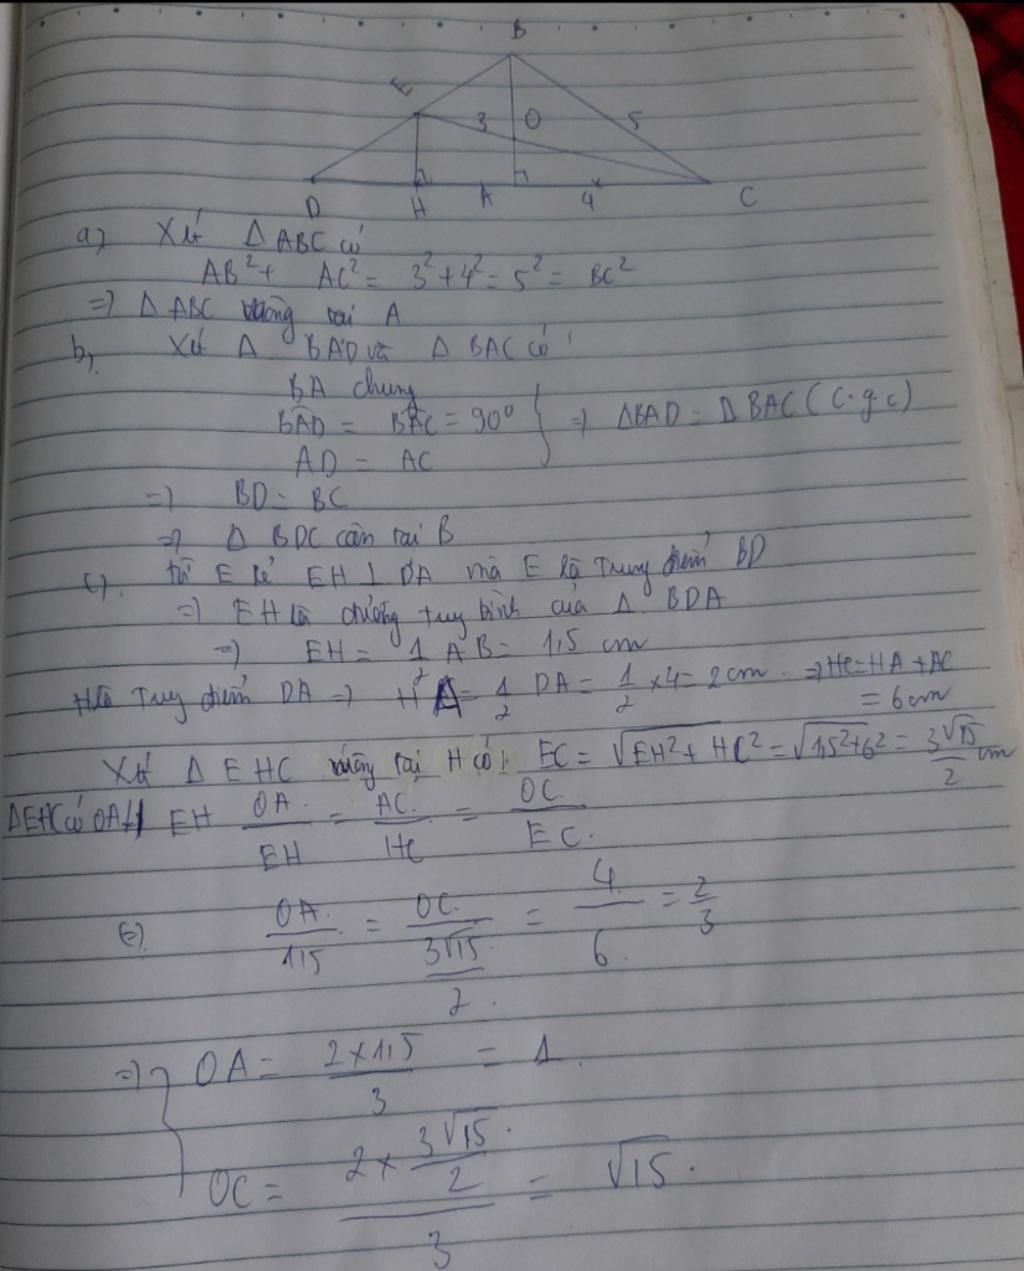 B
E
3 O 5
D H A 4 C
a) Xét Δ ABC có
AB² + AC² = 3² + 4² = 5² = BC²
=> Δ ABC vuông tại A
b, Xét Δ BAD và Δ BAC có
BA chung
BAD = BAC = 90° } => ΔBAD = Δ BAC (c.g.c)
AD = AC
=> BD = BC
=> Δ BDC cân tại B
c). từ E kẻ EH ⊥ DA mà E là Trung điểm BD
=> EH là đường trung bình của Δ BDA
=> EH = 1/2 AB = 1,5 cm
H là Trung điểm DA => HA = 1/2 DA = 1/2 × 4 = 2 cm. => HC = HA + AC
= 6 cm
Xét Δ EHC vuông tại H có: EC = √EH² + HC² = √1,5² + 6² = 3√15/2 cm
ΔEHC có OA // EH OA/EH = AC/HC = OC/EC.
(=) OA/1,5 = OC/3√15/2 = 4/6 = 2/3
=> { OA = 2×1,5/3 = 1.
OC = 2 × 3√15/2 / 3 = √15.